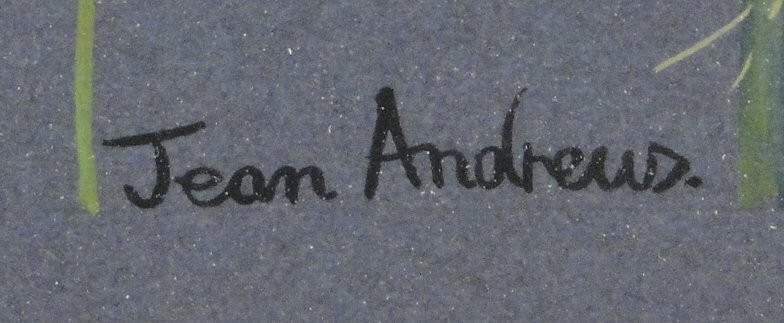 Jean Andrews.